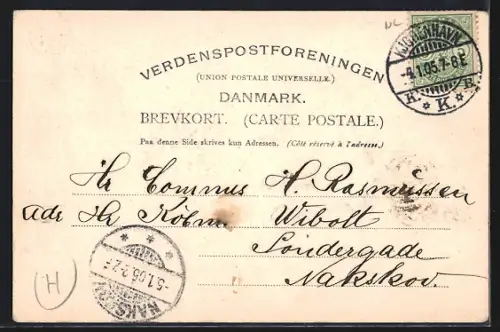 VERDENSPOSTFORENINGEN
(UNION POSTALE UNIVERSELLE.)
DANMARK.
BREVKORT. (CARTE POSTALE.)
Paa denne Side skrives kun Adressen. (Côté réservé à l'adresse.)
KJØBENHAVN
-4.1.05.7-8E
K. K. E.
Hr Commus H. Rasmussen
Adr Hr Købm Wibolt
Söndergade
Nakskov.
-5.1.05.
NAKSKOV
(H)